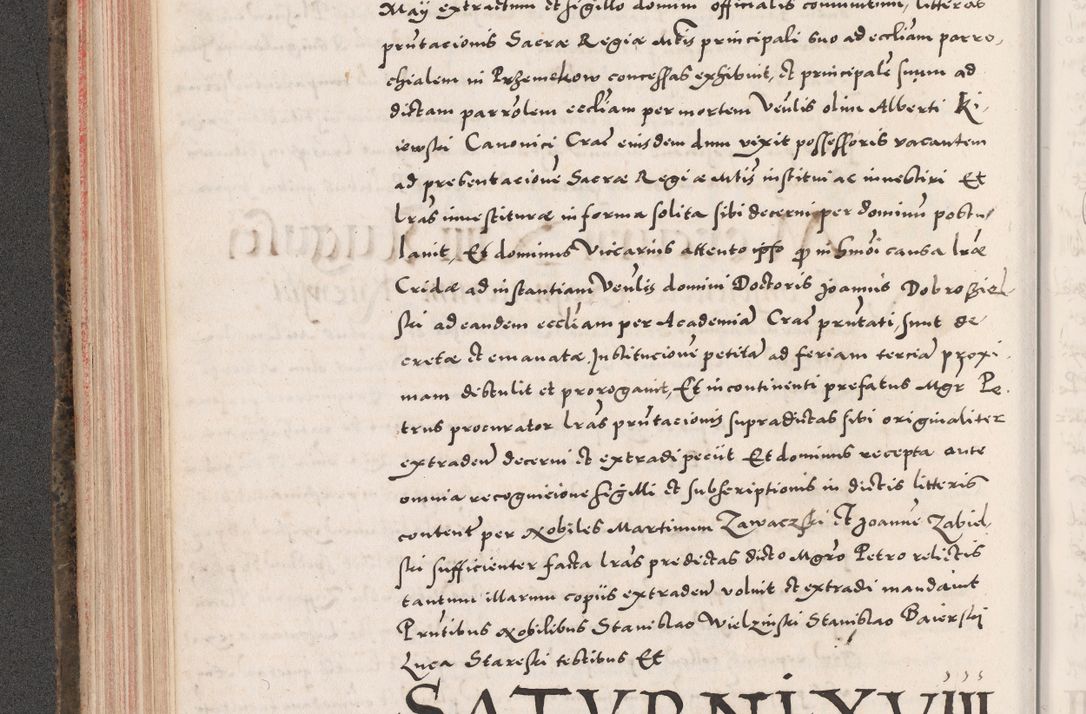 May extractum et sigillo domini officialis communitum, litteras
pñtacionis Sacrae Regiae Mtis principali suo ad eccliam parro,
chialem in Przemekow concessas exhibuit, et principale suum ad
dictam parrolem eccliam per mortem Venlis olim Alberti Ki,
iewski Canonici Crac eiusdem dum vixit possessoris vacantem
ad presentacione Sacrae Regiae Mtis institui ac investiri Et
lras investiturae in forma solita sibi decerni per dominu postu,
lavit, Et dominus Vicarius attento ipso qp in hmoi causa lrae
Cridae ad instantiam Venlis domini Doctoris Joannis Dobrosziel,
ski ad eandem eccliam per Academia Crac pñtati, sunt de
cretae et emanatae. Institucione petita ad feriam tercia proxi
mam distulit et prorogavit, Et in continenti prefatus Mgr Pe.
trus procurator lras pñtacionis supradictas sibi originaliter
extraden decerni et extradi peciit Et dominus recepta ante
omnia recognicione sigilli et subscriptionis in dictis litteris
content per Nobiles Martinum Zawaczski et Joanne Zabiel,
ski sufficienter facta lras predictas dicto Mgro Petro relictis
tantum illarum copiis extraden voluit et extradi mandavit
Pñtibus Nobilibus Stanislao Wielzinski Stanislao Baierski
Luca Stareski testibus Et
SATVRNI XVIII